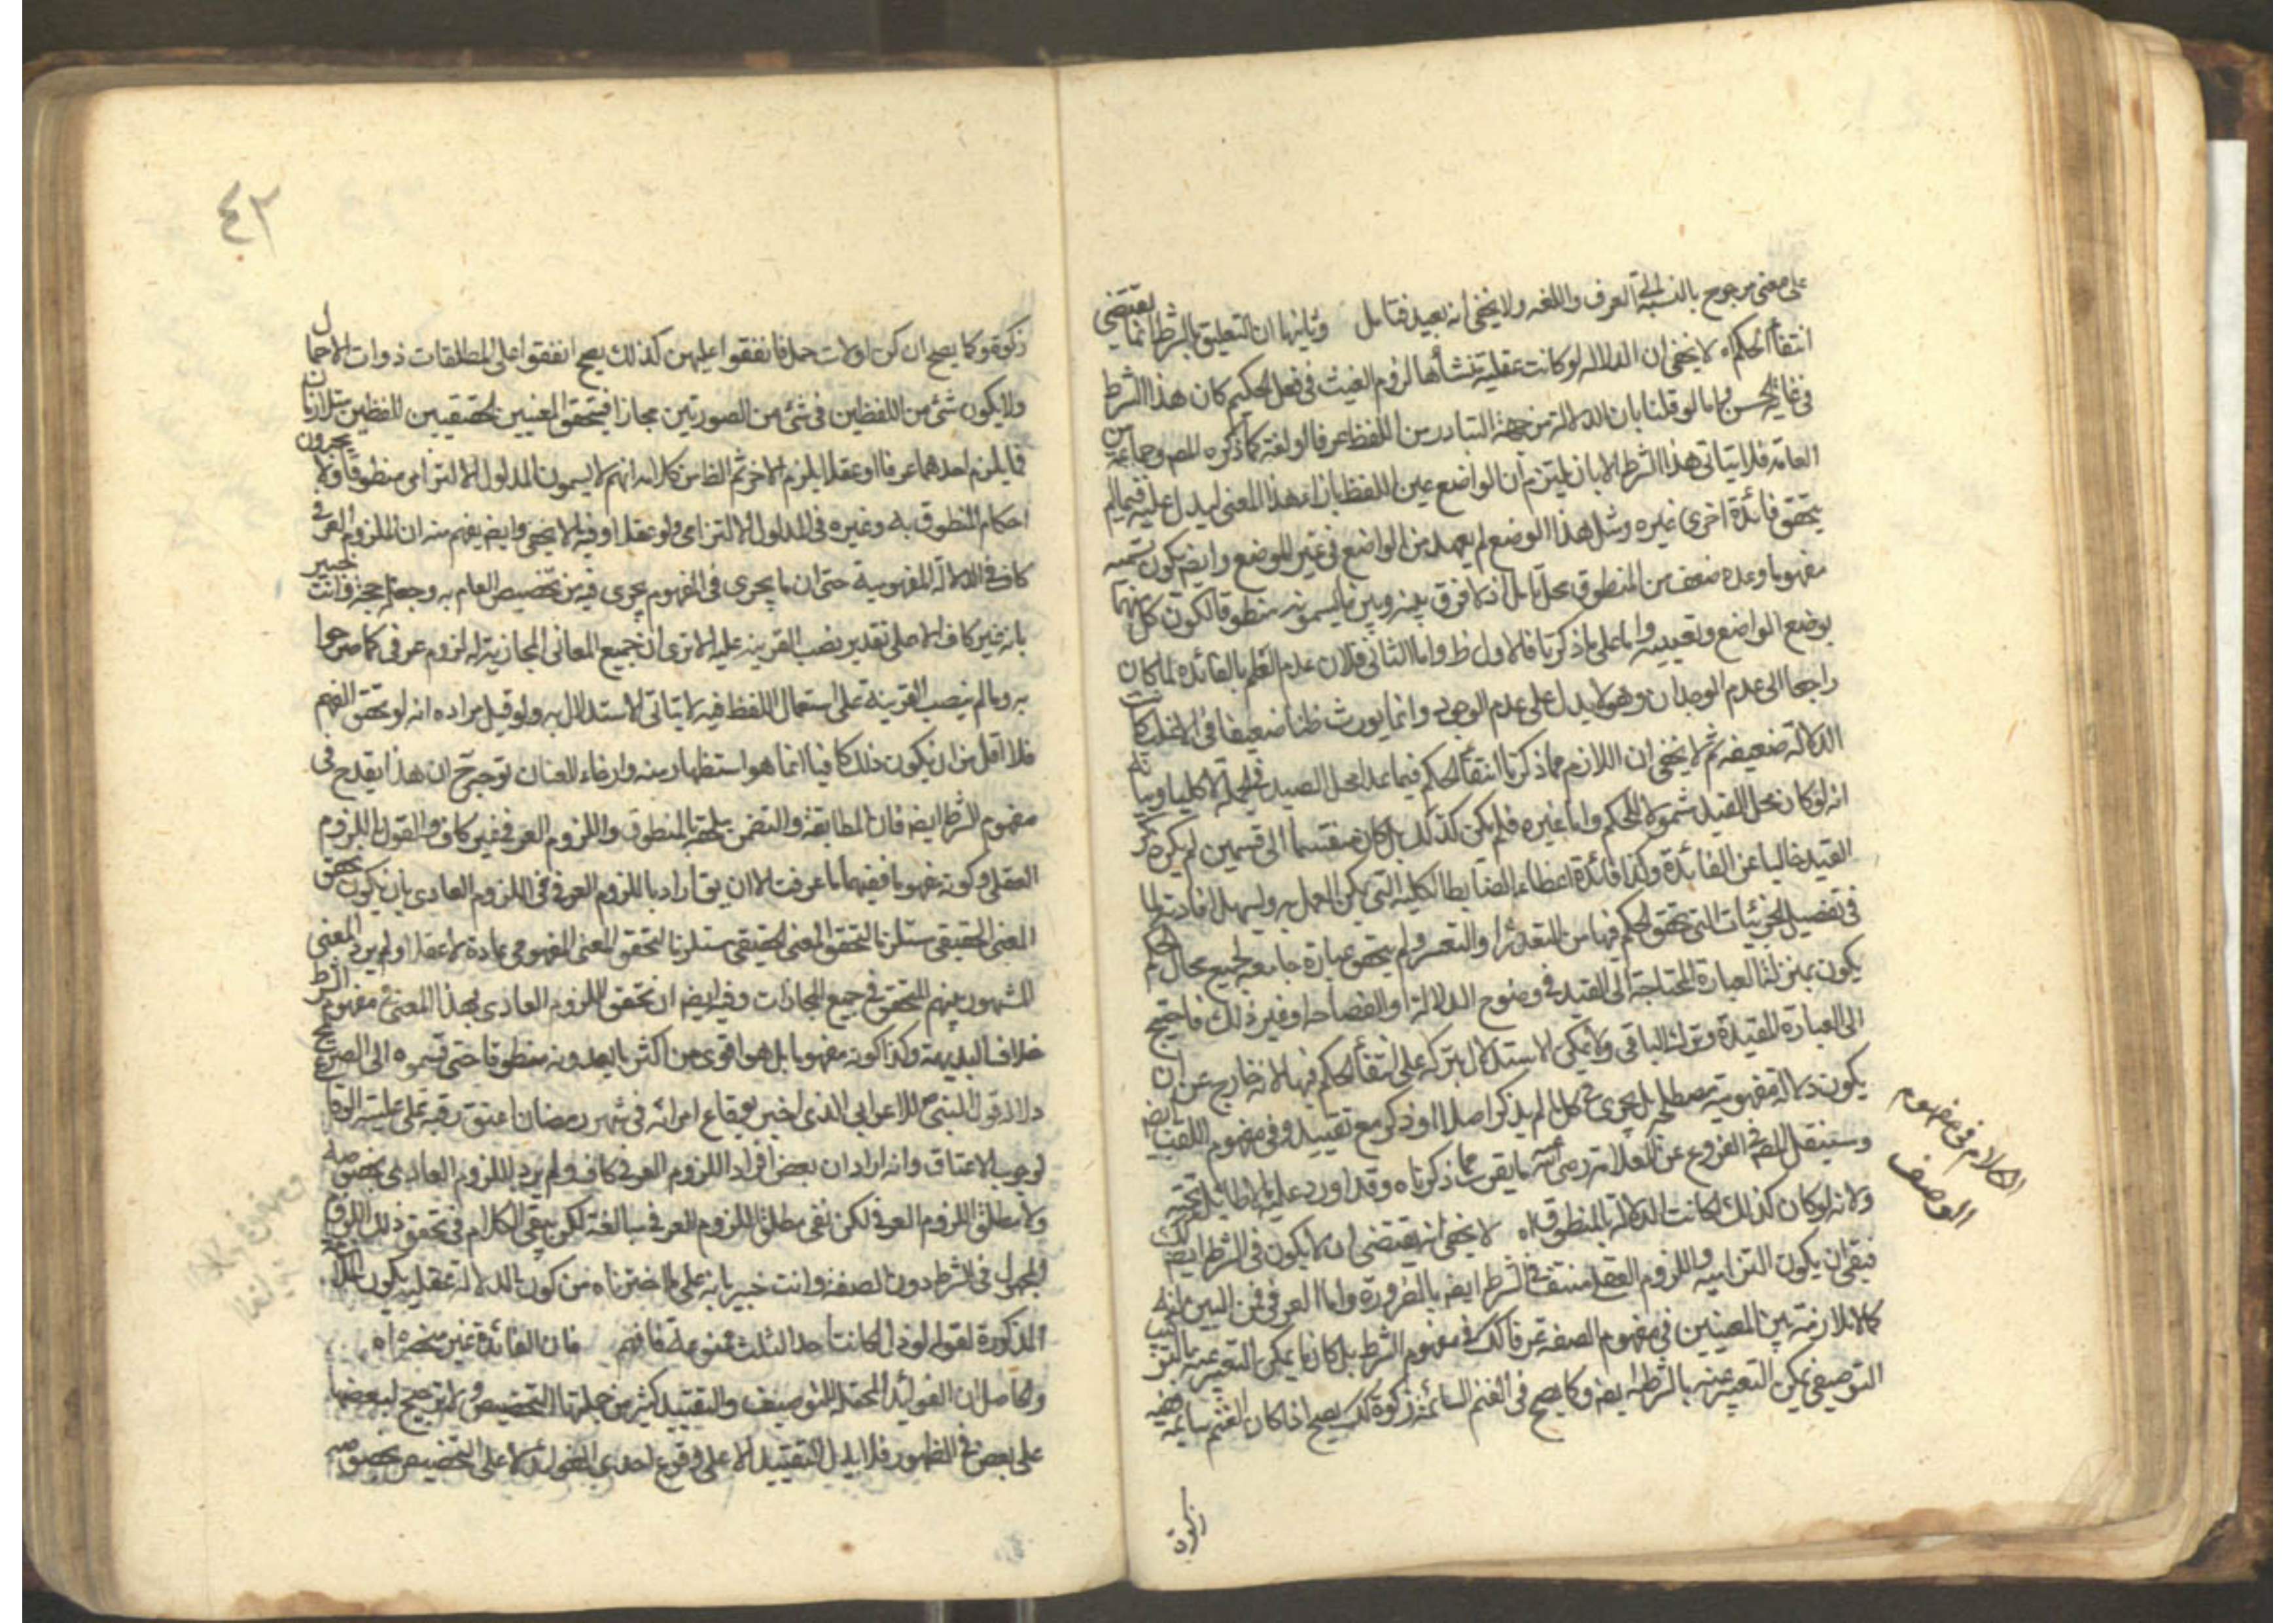 على معنى مرجوح بالنسبة الى العرف واللغه ولا يخفى انه بعيد فتامل وثانيها ان التعليق بالشرط انما يقتضى
انتفأ الحكم اه لا يخفى ان الدلاله لو كانت عقلية تنشأها لزوم العبث فى فعل الحكيم كان هذا الشرط
فى غاية الحسن واما لو قلنا بان الدلالة من جهة التبادر من اللفظ عرفا او لغة كما ذكره المص وجماعة من
العامة فلا يتاتى هذا الشرط الا بان يلتزم ان الواضع عين اللفظ بازاء هذا المعنى ليدل عليه فيما لم
يتحقق فائدة اخرى غيره ومثل هذا الوضع لم يعهد من الواضع فى غير الموضع وايضا يكون تسميته
مفهوما وعده ضعف من المنطوق محل تامل اذ لا فرق بينه وبين ما يسمونه منطوقا لكون كل منهما
بوضع الواضع وتعيينه واما على ما ذكرنا فالاول ظ واما الثانى فلان عدم العلم بالفائده لما كان
راجعا الى عدم الوجدان وهو لا يدل على عدم الوجود وانما يورث ظنا ضعيفا فى الاغلب كانت
الدلالة ضعيفه ثم لا يخفى ان اللازم مما ذكرنا انتفأ الحكم فيما عدا محل القيد فى الجملة لا كليا وبيانه
انه لو كان محل القيد شمولا للحكم واما غيره فلم يكن كذلك بل كان منقسما الى قسمين لم يكن ذكر
القيد خاليا عن الفائدة وكذا فائدة اعطاء الضابطة الكلية التى يمكن العمل به وليسهل افادتها لما
فى تفصيل الجزئيات التى تحقق الحكم فيها من التعذر او التعسر ولم يتحقق عبارة جامعه لجميع محال الحكم
يكون بمنزلة العبارة المحتاجة الى القيد فى وضوح الدلالة او الفصاحة او غير ذلك فاحتيج
الى العبارة المقيدة وترك الباقى ولا يمكن الاستدلال بتركه على انتفأ الحكم فيها لانه خارج عن ان
يكون دلالة مفهومية مصطلحة بل يجرى فى كل ما لم يذكر اصلا او ذكر مع تقييد وفى مفهوم اللقب ايض
وسينقل المص فى الفروع عن العلامة رضى الله ما يقرب مما ذكرناه وقد اورد عليه ما لا طائل تحته
ولانه لو كان كذلك لكانت الدلالة بالمنطوق اه لا يخفى انه يقتضى ان لا يكون فى الشرط ايض كك
فبقى ان يكون التزاميه واللزوم العقلى منتف فى الشرط ايض بالضرورة واما العرفى فمن البين انه
كما لا ملازمة بين المعنيين فى مفهوم الصفة عرفا كك فى مفهوم الشرط بل كل ما يمكن التعبير عنه بالتركيب
التوصيفى يمكن التعبير عنه بالشرطيه ايض وكما يصح فى الغنم السائمة زكوة كك يصح اذا كان الغنم سائمه ففيه
زكوة
الكلام فى مفهوم
الوصف
٤٢
زكوة وكما يصح ان كن اولات حمل فانفقوا عليهن كذلك يصح انفقوا على المطلقات ذوات الاحمال
ولا يكون شئ من اللفظين فى شئ من الصورتين مجازا فيتحقق المعنيين الحقيقيين للفظين متلازمان
فما يلزم احدهما عرفا او عقلا يلزم الاخر ثم الظ من كلامه انهم لا يسمون المدلول الالتزامى منطوقا ولا يجرون
احكام المنطوق به وغيره فى المدلول الالتزامى ولو عقلا وفيه ما لا يخفى وايض يفهم منه ان اللزوم العرفى
كاف فى الدلالة المفهومية حتى ان ما يجرى فى المفهوم يجرى فيه من تخصيص العام به وجعله حجة وانت خبير
بانه غير كاف الا على تقدير نصب القرينه عليه الا ترى ان جميع المعانى المجازية له لزوم عرفى كما صرحوا
به وما لم ينصب القرينة على استعمال اللفظ فيه لا يتاتى الاستدلال به ولو قيل مراده انه لو تحقق الفهم
فلا اقل من ان يكون ذلك كافيا انما هو استظهار منه وارخاء للعنان توجه ح ان هذا يقدح فى
مفهوم الشرط ايض فان المطابقة والتضمن يلحقه بالمنطوق واللزوم العرفى غير كاف والقول باللزوم
العقلى وكونه مفهوما ففيهما ما عرفت الا ان يق اراد باللزوم العرفى اللزوم العادى بان يكون تحقق
المعنى الحقيقى مستلزما لتحقق المعنى المفهومى عادة لا عقلا ولم يرد المعنى
المشهور بينهم المتحقق فى جميع المجازات وفيه ايض ان تحقق اللزوم العادى بهذا المعنى فى مفهوم الشرط
خلاف البديهة وكذا كونه مفهوما بل هو اقوى من اكثر ما يعدونه منطوقا حتى قسموه الى الصريح
دلالة قول النبى ص للاعرابى الذى اخبر بوقاع امرائه فى شهر رمضان اعتق رقبه على علية الوقاع
لوجوب الاعتاق وانه اراد ان بعض افراد اللزوم العرفى كاف ولم يرد اللزوم العادى بخصوصه
ولا مطلق اللزوم العرفى لكن نفى مطلق اللزوم العرفى مبالغة لكن بقى الكلام فى تحقق ذلك اللزوم
المجهول فى الشرط دون الصفة وانت خبير بانه على ما اخترناه من كون الدلالة عقليه يكون الملازمة
المذكورة لقوله لو دل لكانت احد الثلث ممنوعة فافهم فان الفائدة غير منحصره اه
والحاصل ان الفوائد المحتمله للتوصيف والتقييد كثير من جملتها التخصيص ولا ترجيح لبعضها
على بعض فى الظهور فلا يدل التقييد الا على وقوع احدى الفوائد لا على التخصيص بخصوصه